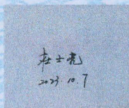 杜士亮
2023.10.7